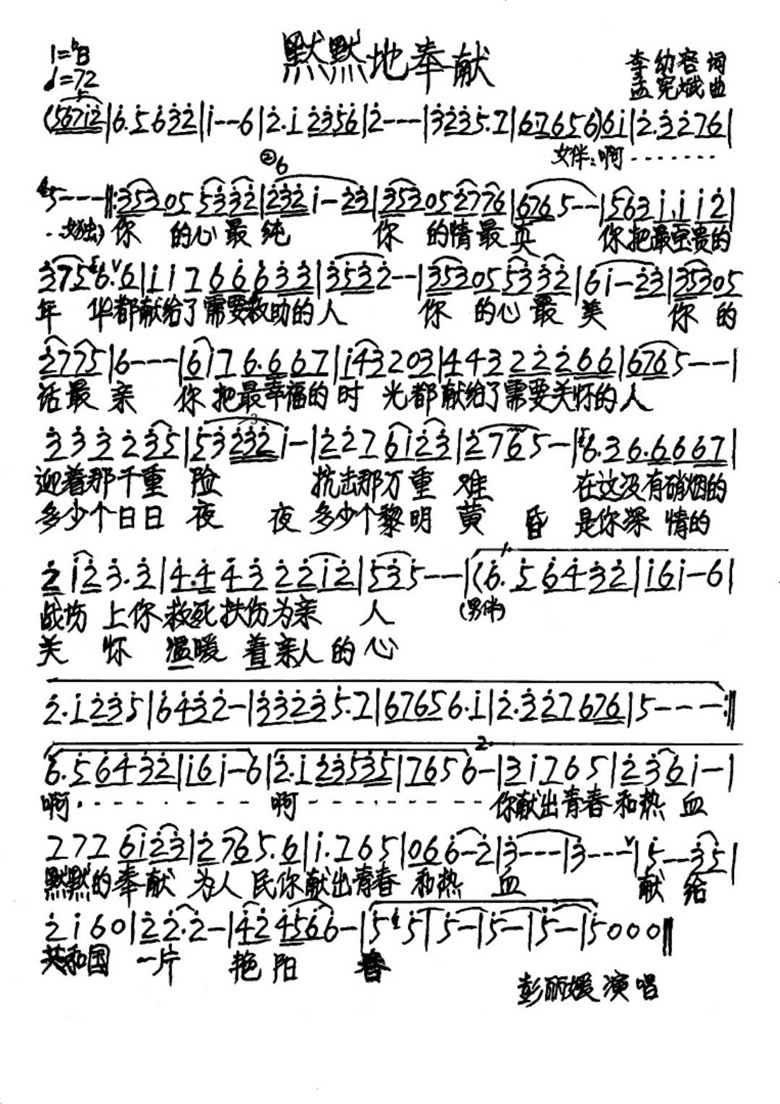 默默地奉献
1=ᵇB
♩=72
李幼容 词
孟宪斌 曲
(5671̇2̇|6.5632|1̇--6|2.1 2356|2---|3235.7|67656)61|2.3276|
女伴:啊·······
5---‖:35305 5332|232 1-23|35305 2776|676 5--|563 1.1 12|
女独)你 的心最纯 你 的情最真 你把最宝贵的
375 6.6|117 66633|3532--|35305 5332|61-23|35305
年 华都献给了需要救助的人 你 的心最美 你 的
2775|6---|6176.667|1432 03|443 22266|6765--|
话最亲 你把最幸福的时 光都献给了需要关怀的人
333235|532321-|2276123|2765-|6.36.6667|
迎着那千重险 抗击那万重难 在这没有硝烟的
多少个日日夜 夜多少个黎明黄 昏 是你深情的
2123.2|4.443 2212|535--|(6.56432|161-6|
战场上你救死扶伤为亲 人 (男伴)
关 怀 温暖着亲人的心
2.1235|6432-|33235.7|67656.1|2.327676|5---:‖
6.56432|161-6|2.123535|7656-|31765|2361-|
啊·········啊·········你献出青春和热 血
2.
2726123|2765.6|1.765|066-2|3---|3---|5--35|
默默的奉献 为人民你献出青春 和热 血 献给
2160|22.2-|424566-|55|5--|5--|5--|5000‖
共和国 一片 艳阳 春
彭丽媛演唱